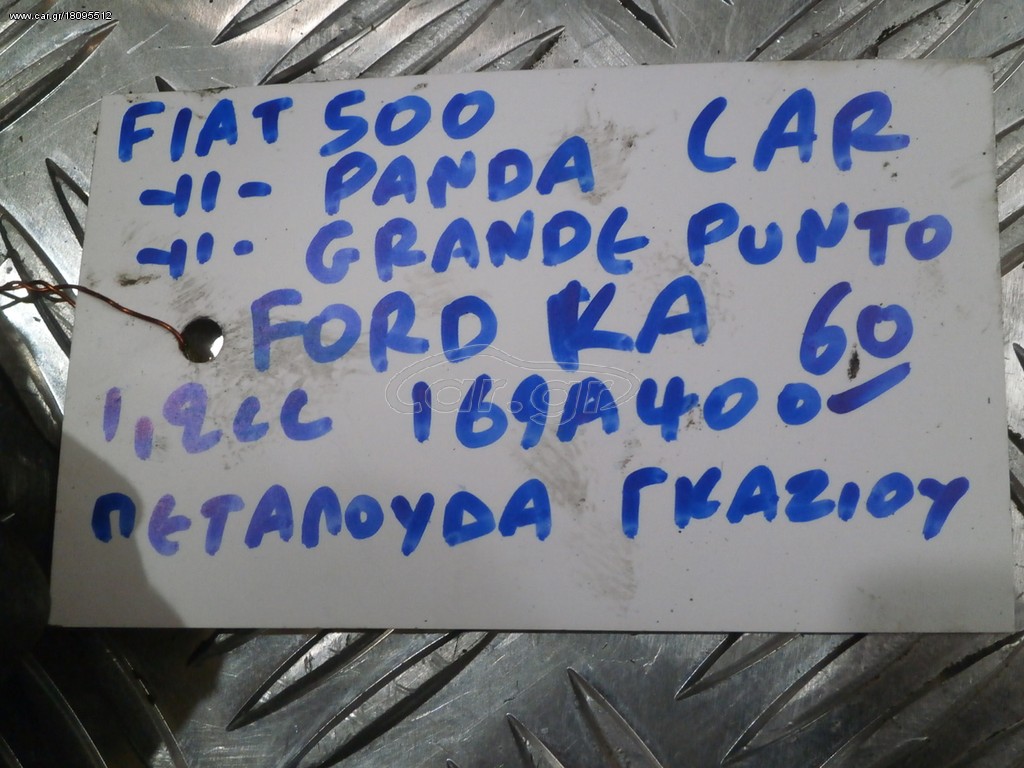 www.car.gr/18095512
FIAT 500 CAR
-11- PANDA
-11- GRANDE PUNTO
FORD KA 60
1,2cc 169A4000
ΠΕΤΑΛΟΥΔΑ ΓΚΑΖΙΟΥ
car.gr